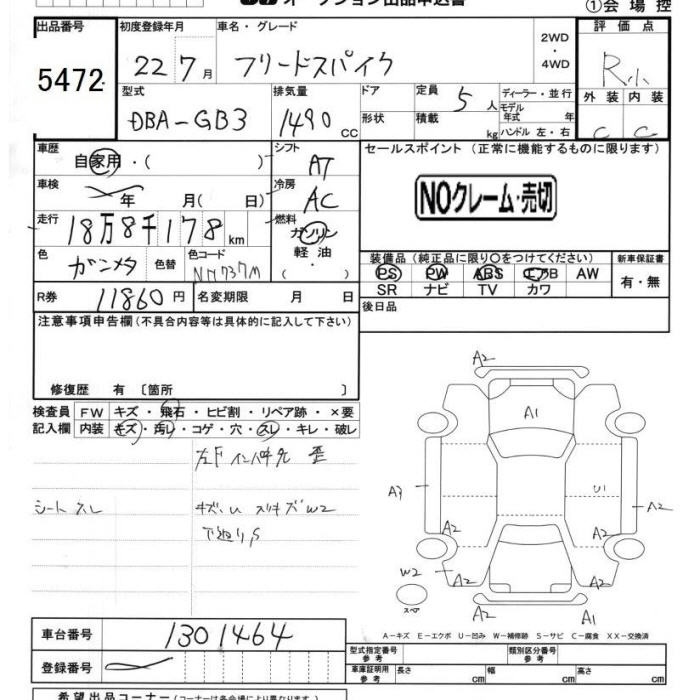 オークション出品申込書
①会場控
出品番号 5472
初度登録年月 22 7月
車名・グレード フリードスパイク
2WD・4WD
評価点 R小
型式 DBA-GB3
排気量 1490 CC
ドア
形状
定員 5人
積載 kg
ディーラー・並行
モデル年式 年
ハンドル 左・右
外装 内装
C C
車歴 自家用・( )
シフト AT
セールスポイント (正常に機能するものに限ります)
車検 年 月( 日)
冷房 AC
NOクレーム・売切
走行 18万8千178km
燃料 ガソリン
軽油
・( )
色 ガンメタ 色替
色コード NH737M
装備品 (純正品に限り○をつけてください)
新車保証書
PS PW ABS エアB AW
有・無
SR ナビ TV カワ
R券 11860円
名変期限 月 日
後日品
注意事項申告欄 (不具合内容等は具体的に記入して下さい)
修復歴 有 〔箇所 〕
検査員 FW キズ・飛石・ヒビ割・リペア跡・×要
記入欄 内装 キズ・汚レ・コゲ・穴・スレ・キレ・破レ
左F インパネ先 歪
シート スレ
キズ、U スリキズ W2
下廻りS
A2
A1
A3
U1
A2
A2
A2
W2
A2
A2
スペア
A2
A1
A-キズ E-エクボ U-凹み W-補修跡 S-サビ C-腐食 XX-交換済
車台番号 1301464
登録番号
型式指定番号 参考
類別区分番号 参考
車庫証明用 参考 長さ cm 幅 cm 高さ cm
希望出品コーナー (コーナーは各会場により異なります)